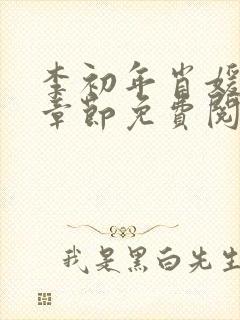 李初年肖媛
章節免費閱
我是黑白先生